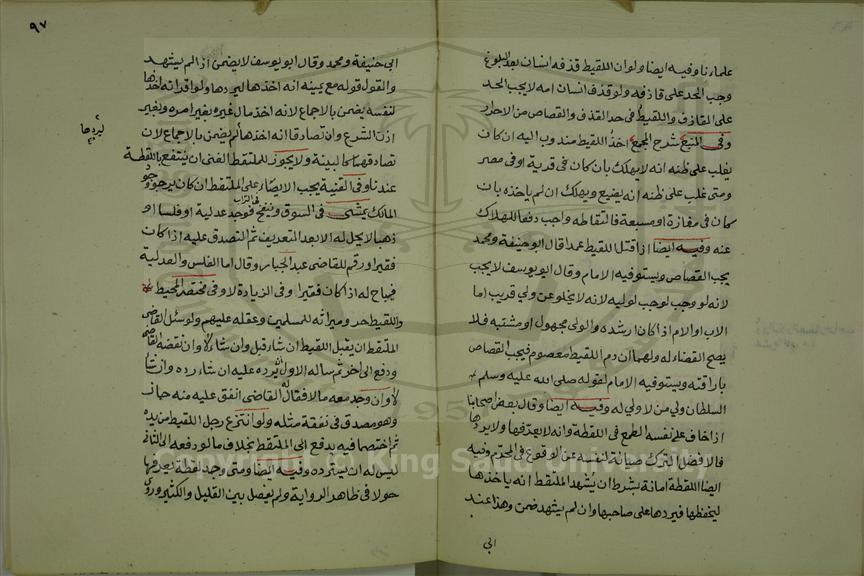 علماءنا وفيه ايضا ولو ان اللقيط قذفه انسان بعد البلوغ
وجب الحد على قاذفه ولو قذف انسان امه لا يجب الحد
على القاذف واللقيط في حد القذف والقصاص من الاحرار
وفي المنبع شرح المجمع اخذ اللقيط مندوب اليه ان كان
يغلب على ظنه انه لا يهلك بان كان في قرية او في مصر
ومتى غلب على ظنه انه يضيع ويهلك ان لم ياخذه بان
كان في مفازة او مسبعة فالتقاطه واجب دفعا للهلاك
عنه وفيه ايضا اذا قتل اللقيط عمدا قال ابو حنيفة ومحمد
يجب القصاص ويستوفيه الامام وقال ابو يوسف لا يجب
لانه لو وجب لوجب لوليه لانه لا يخلو عن ولي قريب اما
الاب او الام اذا كان ارشده والولي مجهول او مشتبه فلا
يصح القضاء له ولهما ان دم اللقيط معصوم فيجب القصاص
باراقته ويستوفيه الامام لقوله صلى الله عليه وسلم
السلطان ولي من لا ولي له وفيه ايضا وقال بعض اصحابنا
اذا خاف على نفسه الطمع في اللقطة وانه لا يعرفها ولا يردها
فالافضل الترك صيانة لنفسه عن الوقوع في المحرم وفيه
ايضا اللقطة امانة بشرط ان يشهد الملتقط انه ياخذها
ليحفظها فيردها على صاحبها وان لم يشهد ضمن وهذا عند
ابي
٩٧
ابي حنيفة ومحمد وقال ابو يوسف لا يضمن اذا لم يشهد
والقول قوله مع يمينه انه اخذها ليردها ولو اقر انه اخذها
لنفسه يضمن بالاجماع لانه اخذ مال غيره بغير امره وبغير
اذن الشرع وان تصادقا انه اخذها لم يضمن بالاجماع لان
ليردها
تصادقهما كالبينة ولا يجوز للملتقط الغني ان ينتفع باللقطة
عندنا وفي القنية يجب الايصاء على الملتقط ان كان يرجو وجود
المالك يمشي في السوق فوجد عدلية او فلسا او
ذهبا لا يحل له الا بعد التعريف ثم التصدق عليه اذا كان
فقيرا ورقم للقاضي عبد الجبار وقال اما الفلس والعدلية
فيباح له اذا كان فقيرا وفي الزيادة لا وفي مختصر المحيط
واللقيط حر وميراثه للمسلمين وعقله عليهم ولو سئل القاضي
الملتقط ان يقبل اللقيط ان شاء قبل وان شاء لا وان نقضه القاضي
ودفع الى اخر ثم ساله الاول ليرده عليه ان شاء رده وان شاء
لا وان وجد معه مالا فقال له القاضي انفق عليه منه جاز
وهو مصدق في نفقة مثله ولو انتزع رجل اللقيط من يده
ثم اختصما فيه يدفع الى الملتقط بخلاف ما لو دفعه الى الثاني
ليس له ان يسترده وفيه ايضا ومتى وجد لقطة يعرفها
حولا في ظاهر الرواية ولم يفصل بين القليل والكثير وروى
Copyright © King Saud University